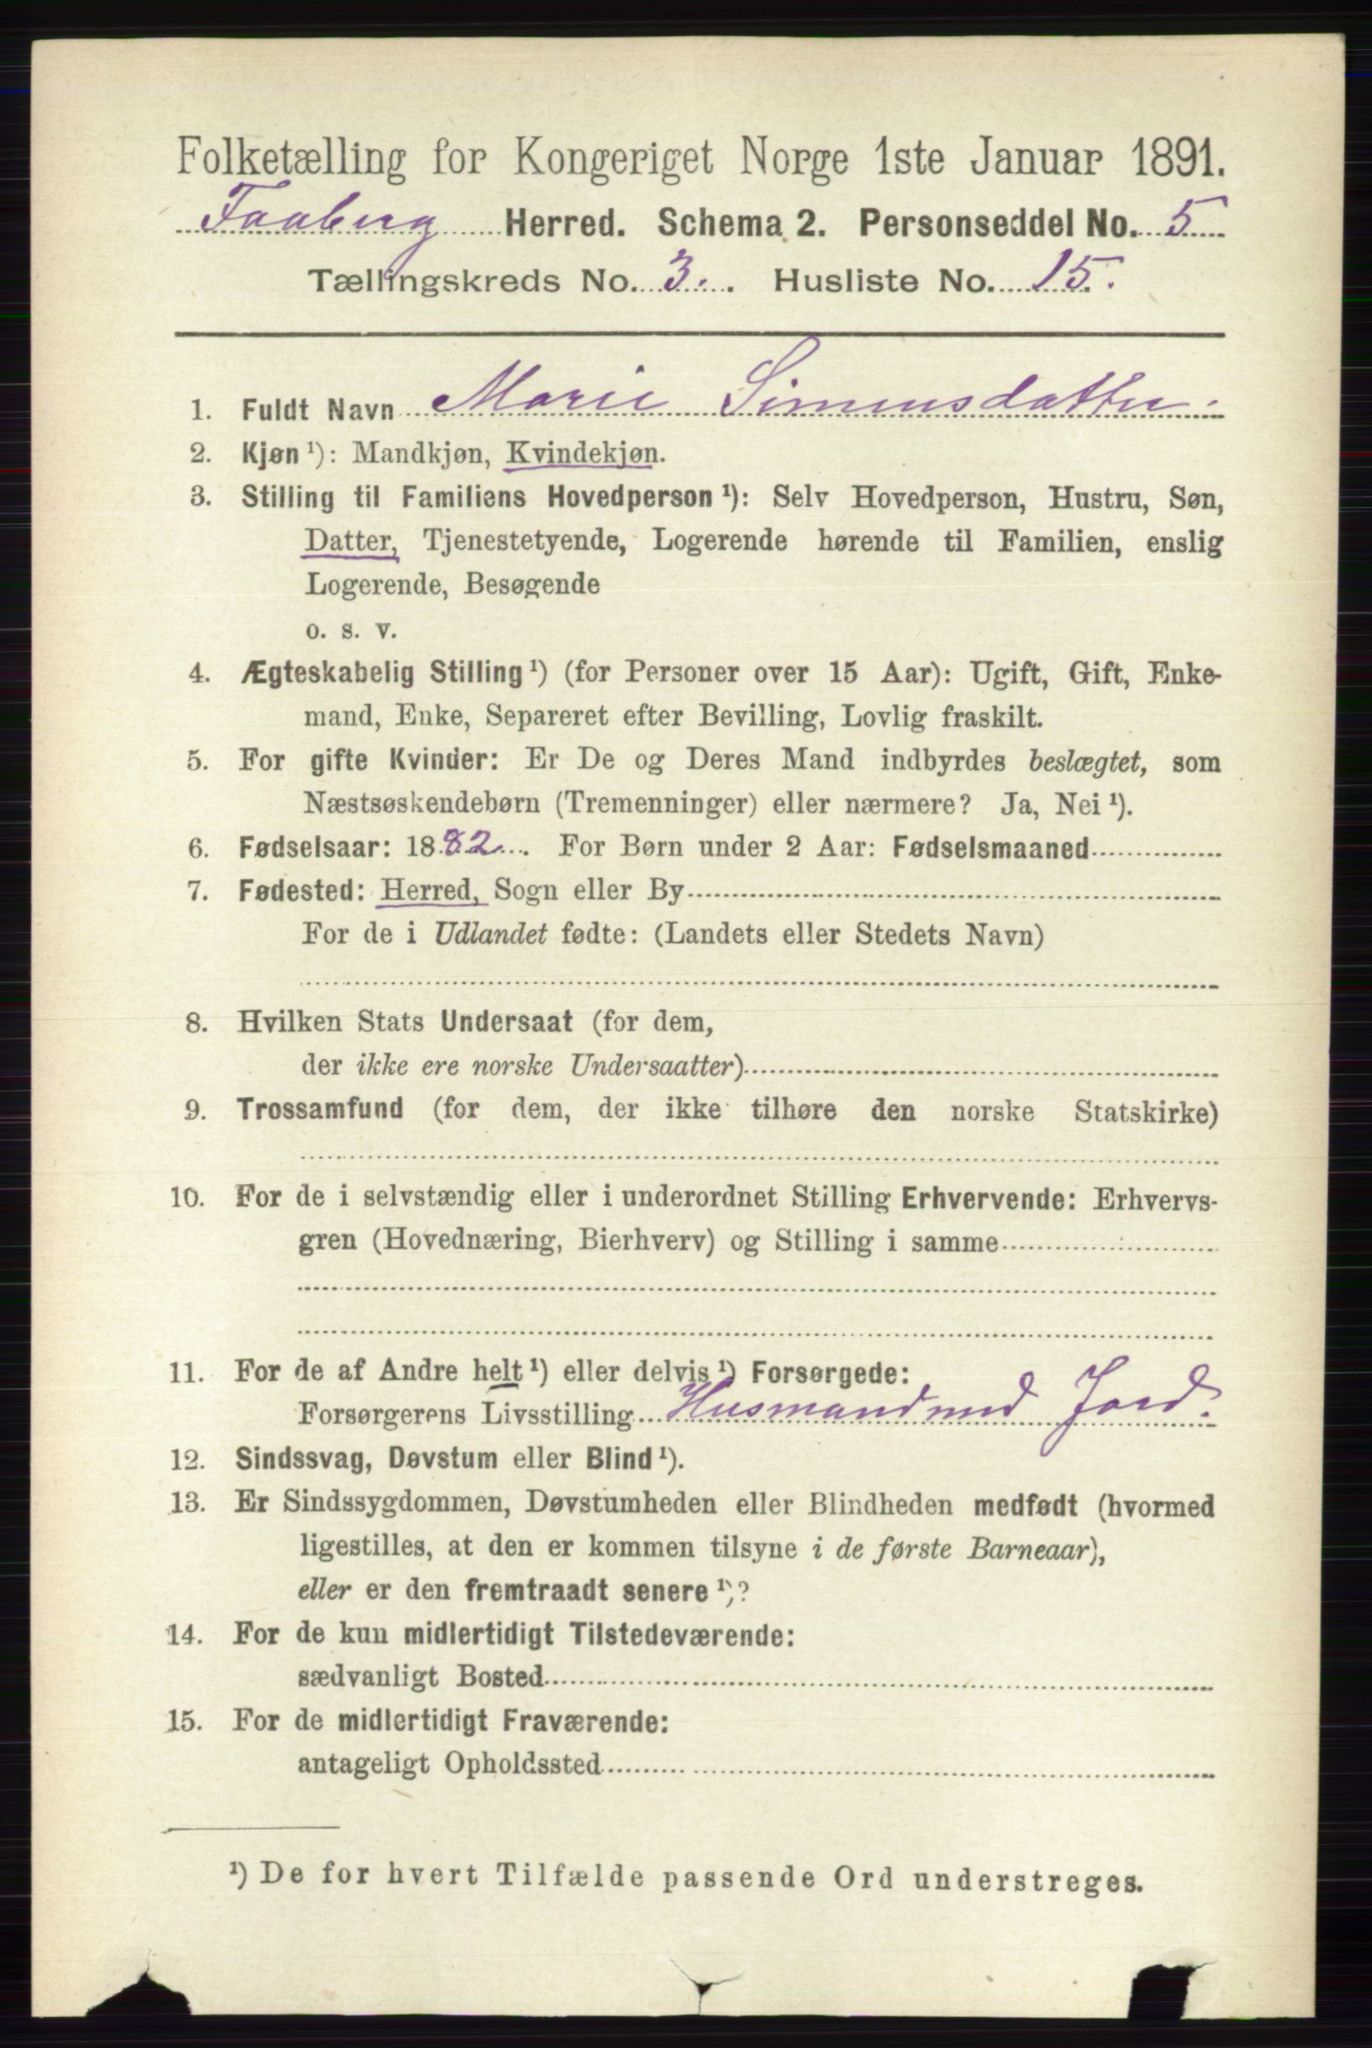 Folketælling for Kongeriget Norge 1ste Januar 1891.
Faaberg Herred. Schema 2. Personseddel No. 5
Tællingskreds No. 3. Husliste No. 15.
1. Fuldt Navn Marie Simensdatter.
2. Kjøn ¹): Mandkjøn, Kvindekjøn.
3. Stilling til Familiens Hovedperson ¹): Selv Hovedperson, Hustru, Søn,
Datter, Tjenestetyende, Logerende hørende til Familien, enslig
Logerende, Besøgende
o. s. v.
4. Ægteskabelig Stilling ¹) (for Personer over 15 Aar): Ugift, Gift, Enke-
mand, Enke, Separeret efter Bevilling, Lovlig fraskilt.
5. For gifte Kvinder: Er De og Deres Mand indbyrdes beslægtet, som
Næstsøskendebørn (Tremenninger) eller nærmere? Ja, Nei ¹).
6. Fødselsaar: 1882. For Børn under 2 Aar: Fødselsmaaned
7. Fødested: Herred, Sogn eller By
For de i Udlandet fødte: (Landets eller Stedets Navn)
8. Hvilken Stats Undersaat (for dem,
der ikke ere norske Undersaatter)
9. Trossamfund (for dem, der ikke tilhøre den norske Statskirke)
10. For de i selvstændig eller i underordnet Stilling Erhvervende: Erhvervs-
gren (Hovednæring, Bierhverv) og Stilling i samme
11. For de af Andre helt ¹) eller delvis ¹) Forsørgede:
Forsørgerens Livsstilling Husmand med Jord.
12. Sindssvag, Døvstum eller Blind ¹).
13. Er Sindssygdommen, Døvstumheden eller Blindheden medfødt (hvormed
ligestilles, at den er kommen tilsyne i de første Barneaar),
eller er den fremtraadt senere ¹)?
14. For de kun midlertidigt Tilstedeværende:
sædvanligt Bosted
15. For de midlertidigt Fraværende:
antageligt Opholdssted
¹) De for hvert Tilfælde passende Ord understreges.